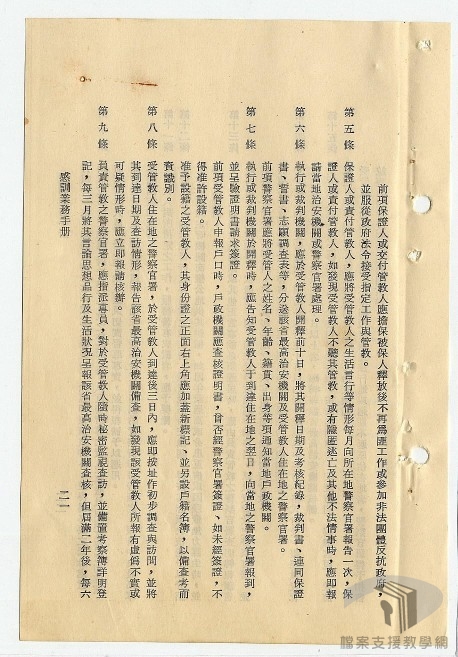 前項保證人或交付管教人應擔保被保人釋放後不再為匪工作或參加非法團體反抗政府，
並服從政府法令接受指定工作與管教。
第五條　保證人或責付管教人，應將受管教人之生活言行等情形每月向所在地警察官署報告一次，保
證人或責付管教人，如發現受管教人不聽其管教，或有隱匿逃亡及其他不法情事時，應即報
請當地治安機關或警察官署處理。
第六條　執行或裁判機關，應於受管教人開釋前十日，將其開釋日期及考核紀錄，裁判書、連同保證
書、誓書、志願調查表等，分送該省最高治安機關及受管教人住在地之警察官署。
前項警察官署應將受管人之姓名、年齡、籍貫、出身等項通知當地戶政機關。
第七條　執行或裁判機關於開釋時，應告知受管教人于到達住在地之翌日，向當地之警察官署報到，
並呈驗證明書請求簽證。
前項受管教人申報戶口時，戶政機關應查核證明書，曾否經警察官署簽證、如未經簽證，不
得准許設籍。
准予設籍之受管教人，其身份證之正面右上角應加蓋新標記、並另設戶籍名簿，以備查考而
資識別。
第八條　受管教人住在地之警察官署，於受管教人到達後三日內，應即按址作初步調查與訪問，並將
其到達日期及查訪情形，報告該省最高治安機關備查，如發現該受管教人所報有虛偽不實或
可疑情形時，應立即報請核辦。
第九條　負責管教之警察官署，應指派專員，對於受管教人隨時秘密監視查訪，並備置考察簿詳明登
記，每三月將其言論思想品行及生活狀況呈報該省最高治安機關查核，但屆滿二年後，每六
感訓業務手册
二一
檔案支援教學網